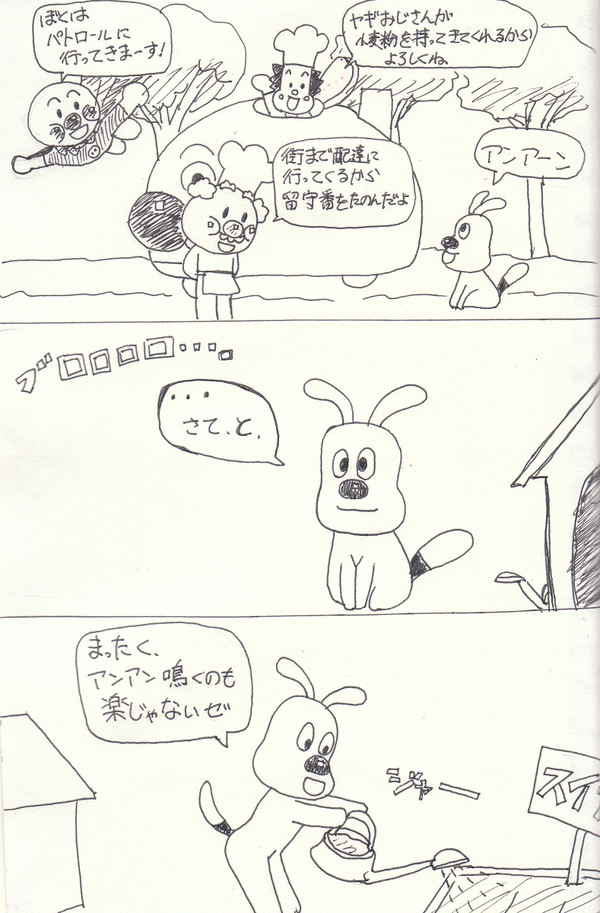 ぼくは
パトロールに
行ってきまーす!
ヤギおじさんが
小麦粉を持ってきてくれるから
よろしくね
街まで配達に
行ってくるから
留守番をたのんだよ
アンアーン
ブロロロロ・・・。
・・・
さて、と、
まったく、
アンアン鳴くのも
楽じゃないゼ
ジャー
スイ